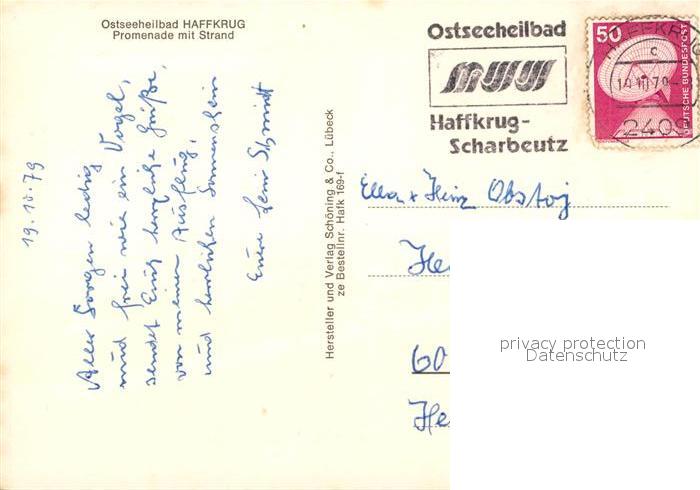 Ostseeheilbad HAFFKRUG
Promenade mit Strand
19.10.79
Aller Sorgen ledig
und frei wie ein Vogel,
sendet Euch herzliche Grüße,
von meinem Ausflug,
und herrlichen Sonnenschein
Eure
Hersteller und Verlag Schöning & Co., Lübeck
ze Bestellnr. Hafk 169-f
Ostseeheilbad
Haffkrug-
Scharbeutz
50
DEUTSCHE BUNDESPOST
HAFFKR
c
79
240
Ella + Heinz Obstoj
He
60
He
privacy protection
Datenschutz